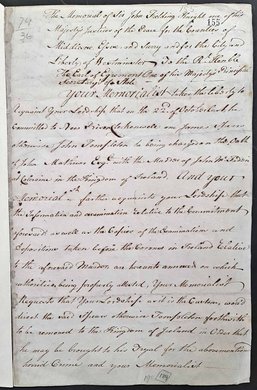 155
74
36
The Memorial of Sir John Fielding Knight one of his
Majestys Justices of the Peace for the Counties of
Middlesex Essex and Surry and for the City and
Liberty of Westminster To the Rt. Honble
The Earl of Egremont One of his Majestys Principal
Secretarys of State
Your Memorialist takes the Liberty to
Acquaint Your Lordship that on the 22d. of October Last he
Committed to New Prison Clerkenwell one James
otherwise John on being charged on the Oath
of John Esqr. with the Murder of John
at Coleraine in the Kingdom of Ireland And your
Memorialist further acquaints your Lordship that
the Information and examination relative to the Commitment
aforesaid as well as the Copies of the Examination and
Depositions taken before the Coroner in Ireland Relative
to the aforesaid Murder are hereunto annexed on which
authorities being properly attested, Your Memorialist
Requests that Your Lordship as it is the Custom, would
direct the said otherwise forthwith
to be removed to the Kingdom of Ireland in Order that
he may be brought to his Tryal for the abovemention
Crime and your Memorialist